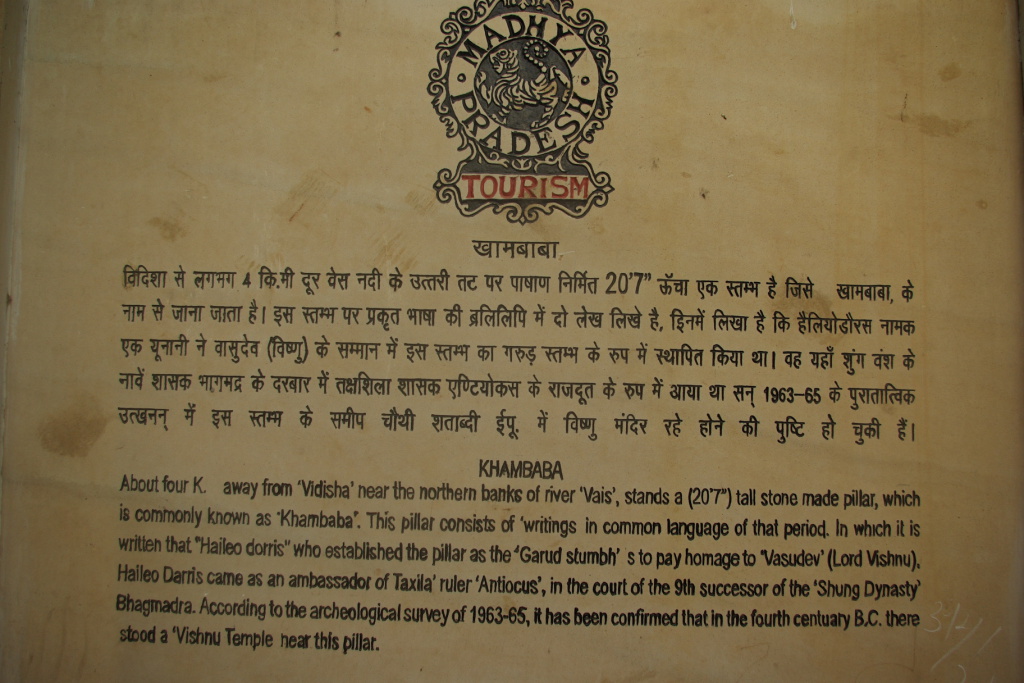 MADHYA PRADESH
TOURISM
खामबाबा
विदिशा से लगभग 4 कि.मी दूर वेस नदी के उत्तरी तट पर पाषाण निर्मित 20'7" ऊँचा एक स्तम्भ है जिसे खामबाबा, के
नाम से जाना जाता है। इस स्तम्भ पर प्रकृत भाषा की ब्रलिलिपि में दो लेख लिखे है, इिनमें लिखा है कि हैलियोडौरस नामक
एक यूनानी ने वासुदेव (विष्णु) के सम्मान में इस स्तम्भ का गरुड़ स्तम्भ के रुप में स्थापित किया था। वह यहाँ शुंग वंश के
नावें शासक भागमद्र के दरबार में तक्षशिला शासक एण्टियोकस के राजदूत के रुप में आया था सन् 1963–65 के पुरातात्विक
उत्खनन् में इस स्तम्भ के समीप चौथी शताब्दी ईपू. में विष्णु मंदिर रहे होने की पुष्टि हो चुकी हैं।
KHAMBABA
About four K. away from 'Vidisha' near the northern banks of river 'Vais', stands a (20'7") tall stone made pillar, which
is commonly known as 'Khambaba'. This pillar consists of 'writings in common language of that period. In which it is
written that "Haileo dorris" who established the pillar as the 'Garud stumbh' s to pay homage to 'Vasudev' (Lord Vishnu).
Haileo Darris came as an ambassador of Taxila' ruler 'Antiocus', in the court of the 9th successor of the 'Shung Dynasty'
Bhagmadra. According to the archeological survey of 1963-65, it has been confirmed that in the fourth centuary B.C. there
stood a 'Vishnu Temple near this pillar.